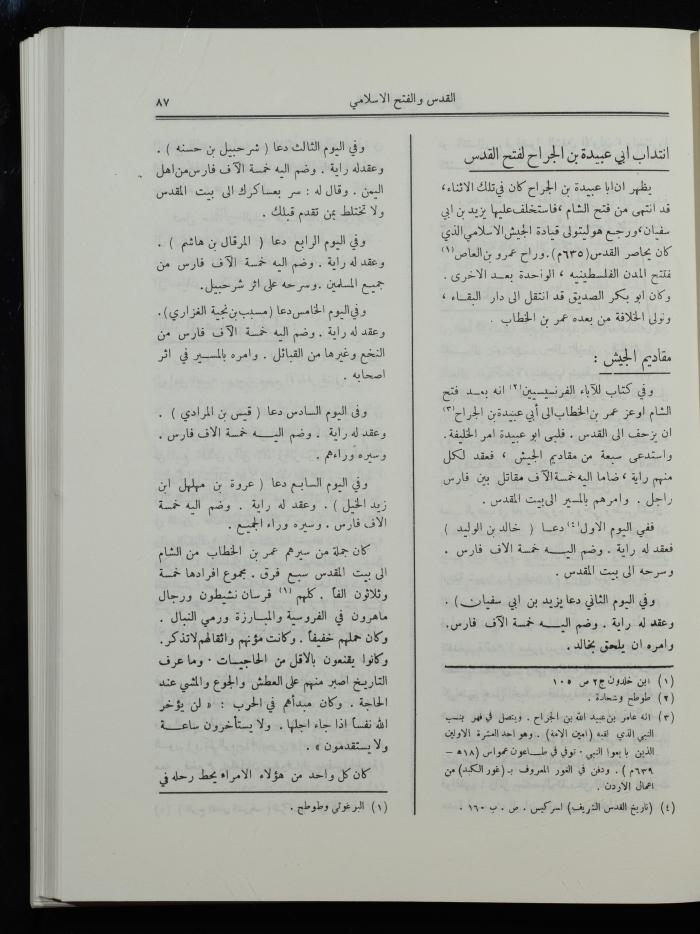 القدس والفتح الاسلامي
٨٧
انتداب ابي عبيدة بن الجراح لفتح القدس
يظهر ان ابا عبيدة بن الجراح كان في تلك الاثناء،
قد انتهى من فتح الشام، فاستخلف عليها يزيد بن ابي
سفيان، ورجع هو ليتولى قيادة الجيش الاسلامي الذي
كان يحاصر القدس (٦٣٥م). وراح عمرو بن العاص(١)
يفتح المدن الفلسطينيه، الواحدة بعد الاخرى.
وكان ابو بكر الصديق قد انتقل الى دار البقاء،
وتولى الخلافة من بعده عمر بن الخطاب.
مقاديم الجيش:
وفي كتاب للآباء الفرنسيسيين(٢) انه بعد فتح
الشام اوعز عمر بن الخطاب الى أبي عبيدة بن الجراح(٣)
ان يزحف الى القدس. فلبى ابو عبيدة امر الخليفة.
واستدعى سبعة من مقاديم الجيش، فعقد لكل
منهم راية، ضاما اليه خمسة الآف مقاتل بين فارس
راجل. وامرهم بالمسير الى بيت المقدس.
ففي اليوم الاول(٤) دعا ( خالد بن الوليد )
فعقد له راية. وضم اليه خمسة الاف فارس.
وسرحه الى بيت المقدس.
وفي اليوم الثاني دعا يزيد بن ابي سفيان).
وعقد له راية. وضم اليه خمسة الآف فارس.
وامره ان يلحق بخالد.
(١) ابن خلدون ج٢ ص ١٠٥
(٢) طوطح وشحادة.
(٣) انه عامر بن عبيد الله بن الجراح. ويتصل في فهر بنسب
النبي الذي لقبه (امين الامة). وهو احد العشرة الاولين
الذين بايعوا النبي. توفي في طاعون عمواس (١٨ه –
٦٣٩م). ودفن في الغور المعروف بـ (غور الكبد) من
اعمال الاردن.
(٤) (تاريخ القدس الشريف) اسركيس. ص. ب ١٦٠.
وفي اليوم الثالث دعا ( شرحبيل بن حسنه ).
وعقد له راية. وضم اليه خمسة الآف فارس من اهل
اليمن. وقال له: سر بعساكرك الى بيت المقدس
ولا تختلط بمن تقدم قبلك.
وفي اليوم الرابع دعا ( المرقال بن هاشم ).
وعقد له راية. وضم اليه خمسة الآف فارس من
جميع المسلمين. وسرحه على اثر شرحبيل.
وفي اليوم الخامس دعا (مسبب بن نجية الغزاري).
وعقد له راية. وضم اليه خمسة الآف فارس من
النخع وغيرها من القبائل. وامره بالمسير في اثر
اصحابه.
وفي اليوم السادس دعا ( قيس بن المرادي ).
وعقد له راية. وضم اليه خمسة الاف فارس.
وسيره وراءهم.
وفي اليوم السابع دعا ( عروة بن مهلهل ابن
زيد الخيل ). وعقد له راية. وضم اليه خمسة
الاف فارس. وسيره وراء الجميع.
كان جملة من سيرهم عمر بن الخطاب من الشام
الى بيت المقدس سبع فرق. مجموع افرادها خمسة
وثلاثون الفاً. كلهم(١) فرسان نشيطون ورجال
ماهرون في الفروسية والمبارزة ورمي النبال.
وكان حملهم خفيفاً. وكانت مؤنهم واثقالهم لا تذكر.
وكانوا يقنعون بالاقل من الحاجيات. وما عرف
التاريخ اصبر منهم على العطش والجوع والمشي عند
الحاجة. وكان مبدأهم في الحرب: « لن يؤخر
الله نفساً اذا جاء اجلها. ولا يستأخرون ساعة
ولا يستقدمون».
كان كل واحد من هؤلاء الامراء يحط رحله في
(١) البرغوثي وطوطح.